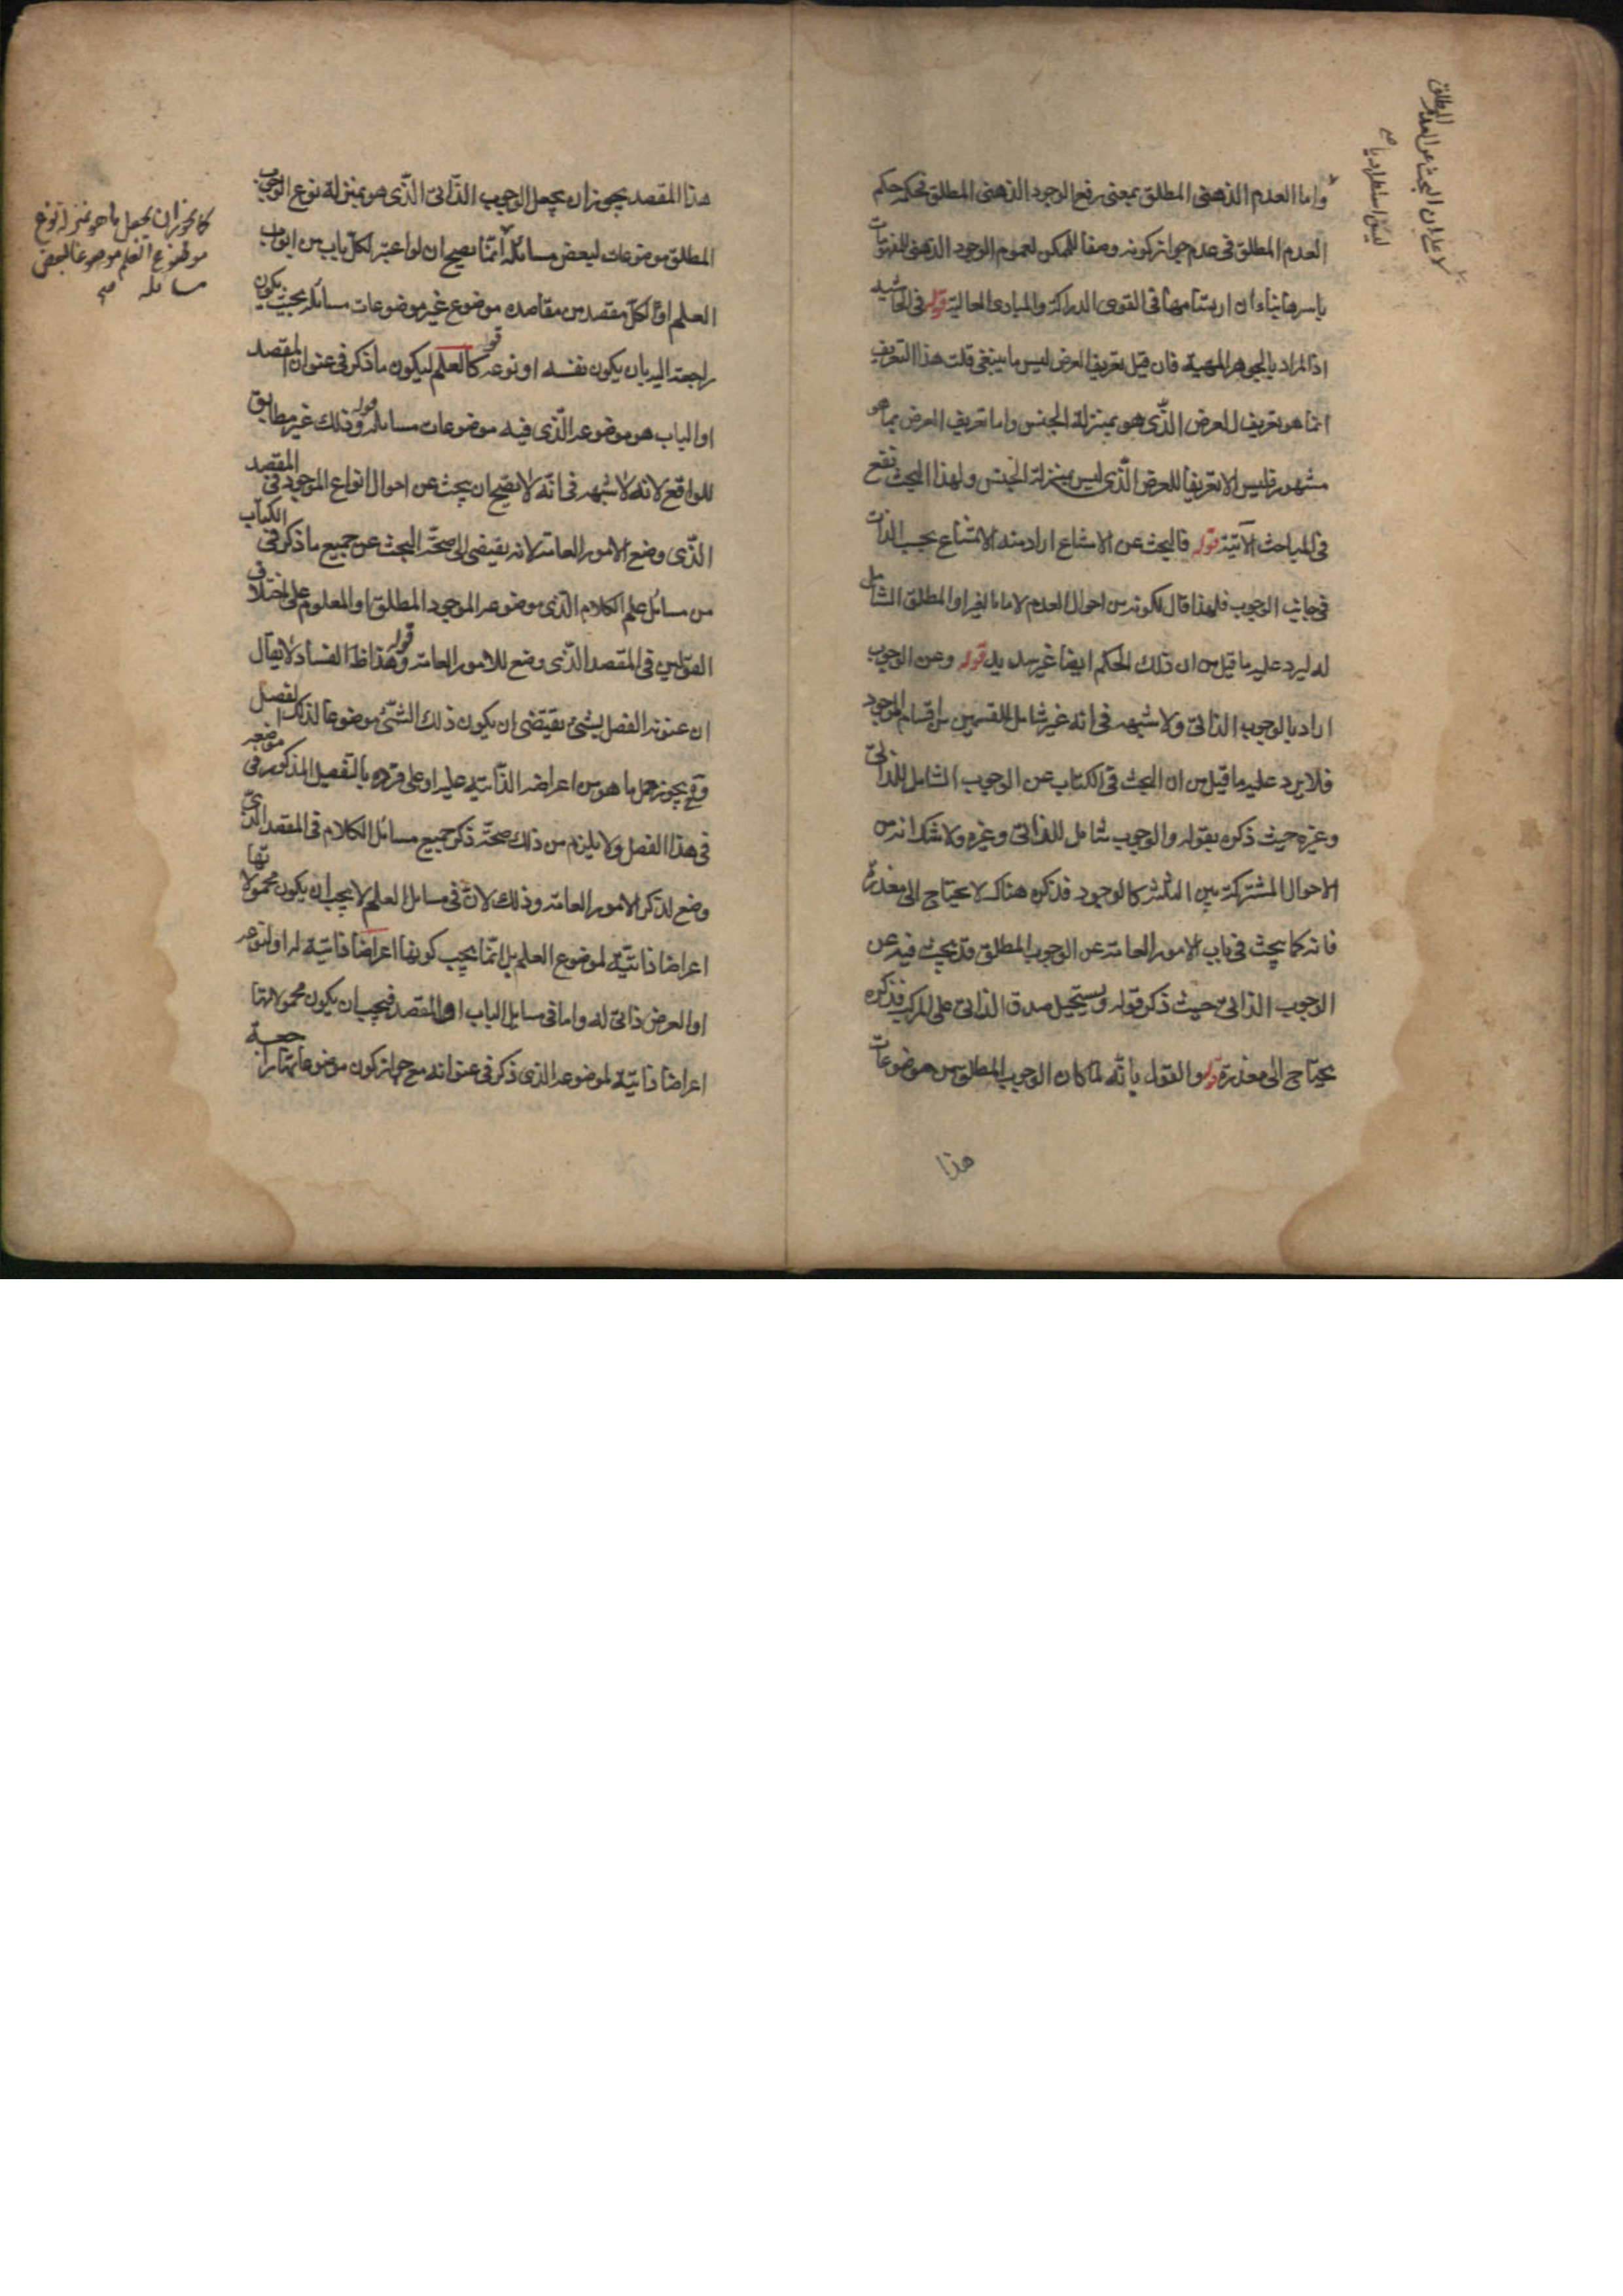 واما العدم الذهنى المطلق بمعنى رفع الوجود الذهنى المطلق فحكمه حكم
العدم المطلق فى عدم جواز كونه وصفا للممكن لعموم الوجود الذهنى للمفهومات
باسرها بناء ان ارتسامها فى القوى الدراكة والمبادى العالية قوله فى الحاشيه
اذ المراد بالجوهر المهية فان قيل تعريف العرض ليس ما ينبغى قلت هذا التعريف
انما هو تعريف للعرض الذى هو بمنزلة الجنس واما تعريف العرض بما هو
مشهور فليس الا تعريفا للعرض الذى ليس بمنزلة الجنس ولهذا البحث نفع
فى المباحث الآتية قوله فالبحث عن الامتناع اراد منه الامتناع بحسب الذات
فى جانب الوجوب فلهذا قال لكونه من احوال العدم لا ما بالغير او المطلق الشامل
له ليرد عليه ما قيل من ان ذلك الحكم ايضا غير سديد قوله وعن الوجوب
اراد بالوجوب الذاتى ولا شبهه فى انه غير شامل للقسمين من اقسام الموجود
فلا يرد عليه ما قيل من ان البحث فى الكتاب عن الوجوب الشامل للذاتى
وغيره حيث ذكره بقوله والوجوب شامل للذاتى وغيره ولا شك انه من
الاحوال المشتركة بين الثلثة كالوجود فذكره هناك لا يحتاج الى معذرة
فانه كما يبحث فى باب الامور العامة عن الوجوب المطلق قد يبحث فيه عن
الوجوب الذاتى حيث ذكر قوله ويستحيل صدق الذاتى على المركب فذكره
يحتاج الى معذرة قوله والقول بانه لما كان الوجوب المطلق من موضوعات
هذا
لا على ان البحث عن العدم المطلق
ليس استطراديا صح
هذا المقصد يجوز ان يجعل الوجوب الذاتى الذى هو بمنزلة نوع الوجوب
المطلق موضوعات لبعض مسائله انما يصح ان لو اعتبر لكل باب من ابواب
العلم او لكل مقصد من مقاصده موضوع غير موضوعات مسائله بحيث يكون
راجعة اليه بان يكون نفسه او نوعه كالعلم ليكون ما ذكر فى عنوان المقصد
او الباب هو موضوعه الذى فيه موضوعات مسائله قوله وذلك غير مطابق
للواقع لانه لا شبهه فى انه لا يصح ان يبحث عن احوال انواع الموجود فى المقصد
الذى وضع الامور العامة لانه يقتضى الى صحة البحث عن جميع ما ذكر فى الكتاب
من مسائل علم الكلام الذى موضوعه الموجود المطلق او المعلوم على اختلاف
القولين فى المقصد الذى وضع للامور العامة قوله وهذا ظ الفساد لا يقال
ان عنونه الفصل بشئ يقتضى ان يكون ذلك الشئ موضوعا لذلك الفصل
وح يجوز حمل ما هو من اعراضه الذاتية عليه او على فرده بالتفصيل المذكور فى موضعه
فى هذا الفصل ولا يلزم من ذلك صحة ذكر جميع مسائل الكلام فى المقصد الذى
وضع لذكر الامور العامة وذلك لان فى مسائل العلم لا يجب ان يكون محمولاتها
اعراضا ذاتية لموضوع العلم بل انما يجب كونها اعراضا ذاتية له او لنوعه
او العرض ذاتى له واما فى مسايل الباب او المقصد فيجب ان يكون محمولاتها
اعراضا ذاتية لموضوعه الذى ذكر فى عنوانه مع جواز كون موضوعاتها راجعة
كما يجوز ان يجعل ما هو بمنزلة نوع
موضوع العلم موضوعا لبعض
مسائله صح